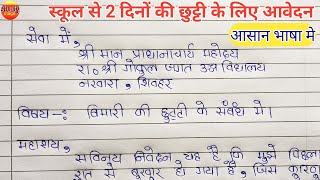 स्कूल से 2 दिनों की छुट्टी के लिए आवेदन
आसान भाषा मे
सेवा में,
श्री मान प्राधानाचार्य महोदय
रा० श्री गोकुल जगत उच्च विद्यालय
नरवारा, शिवहर
विषय -: बिमारी की छुट्टी के संबंध में।
महाशय,
सविनय निवेदन यह है कि मुझे
रात से बुखार हो गया है, जिस कारण